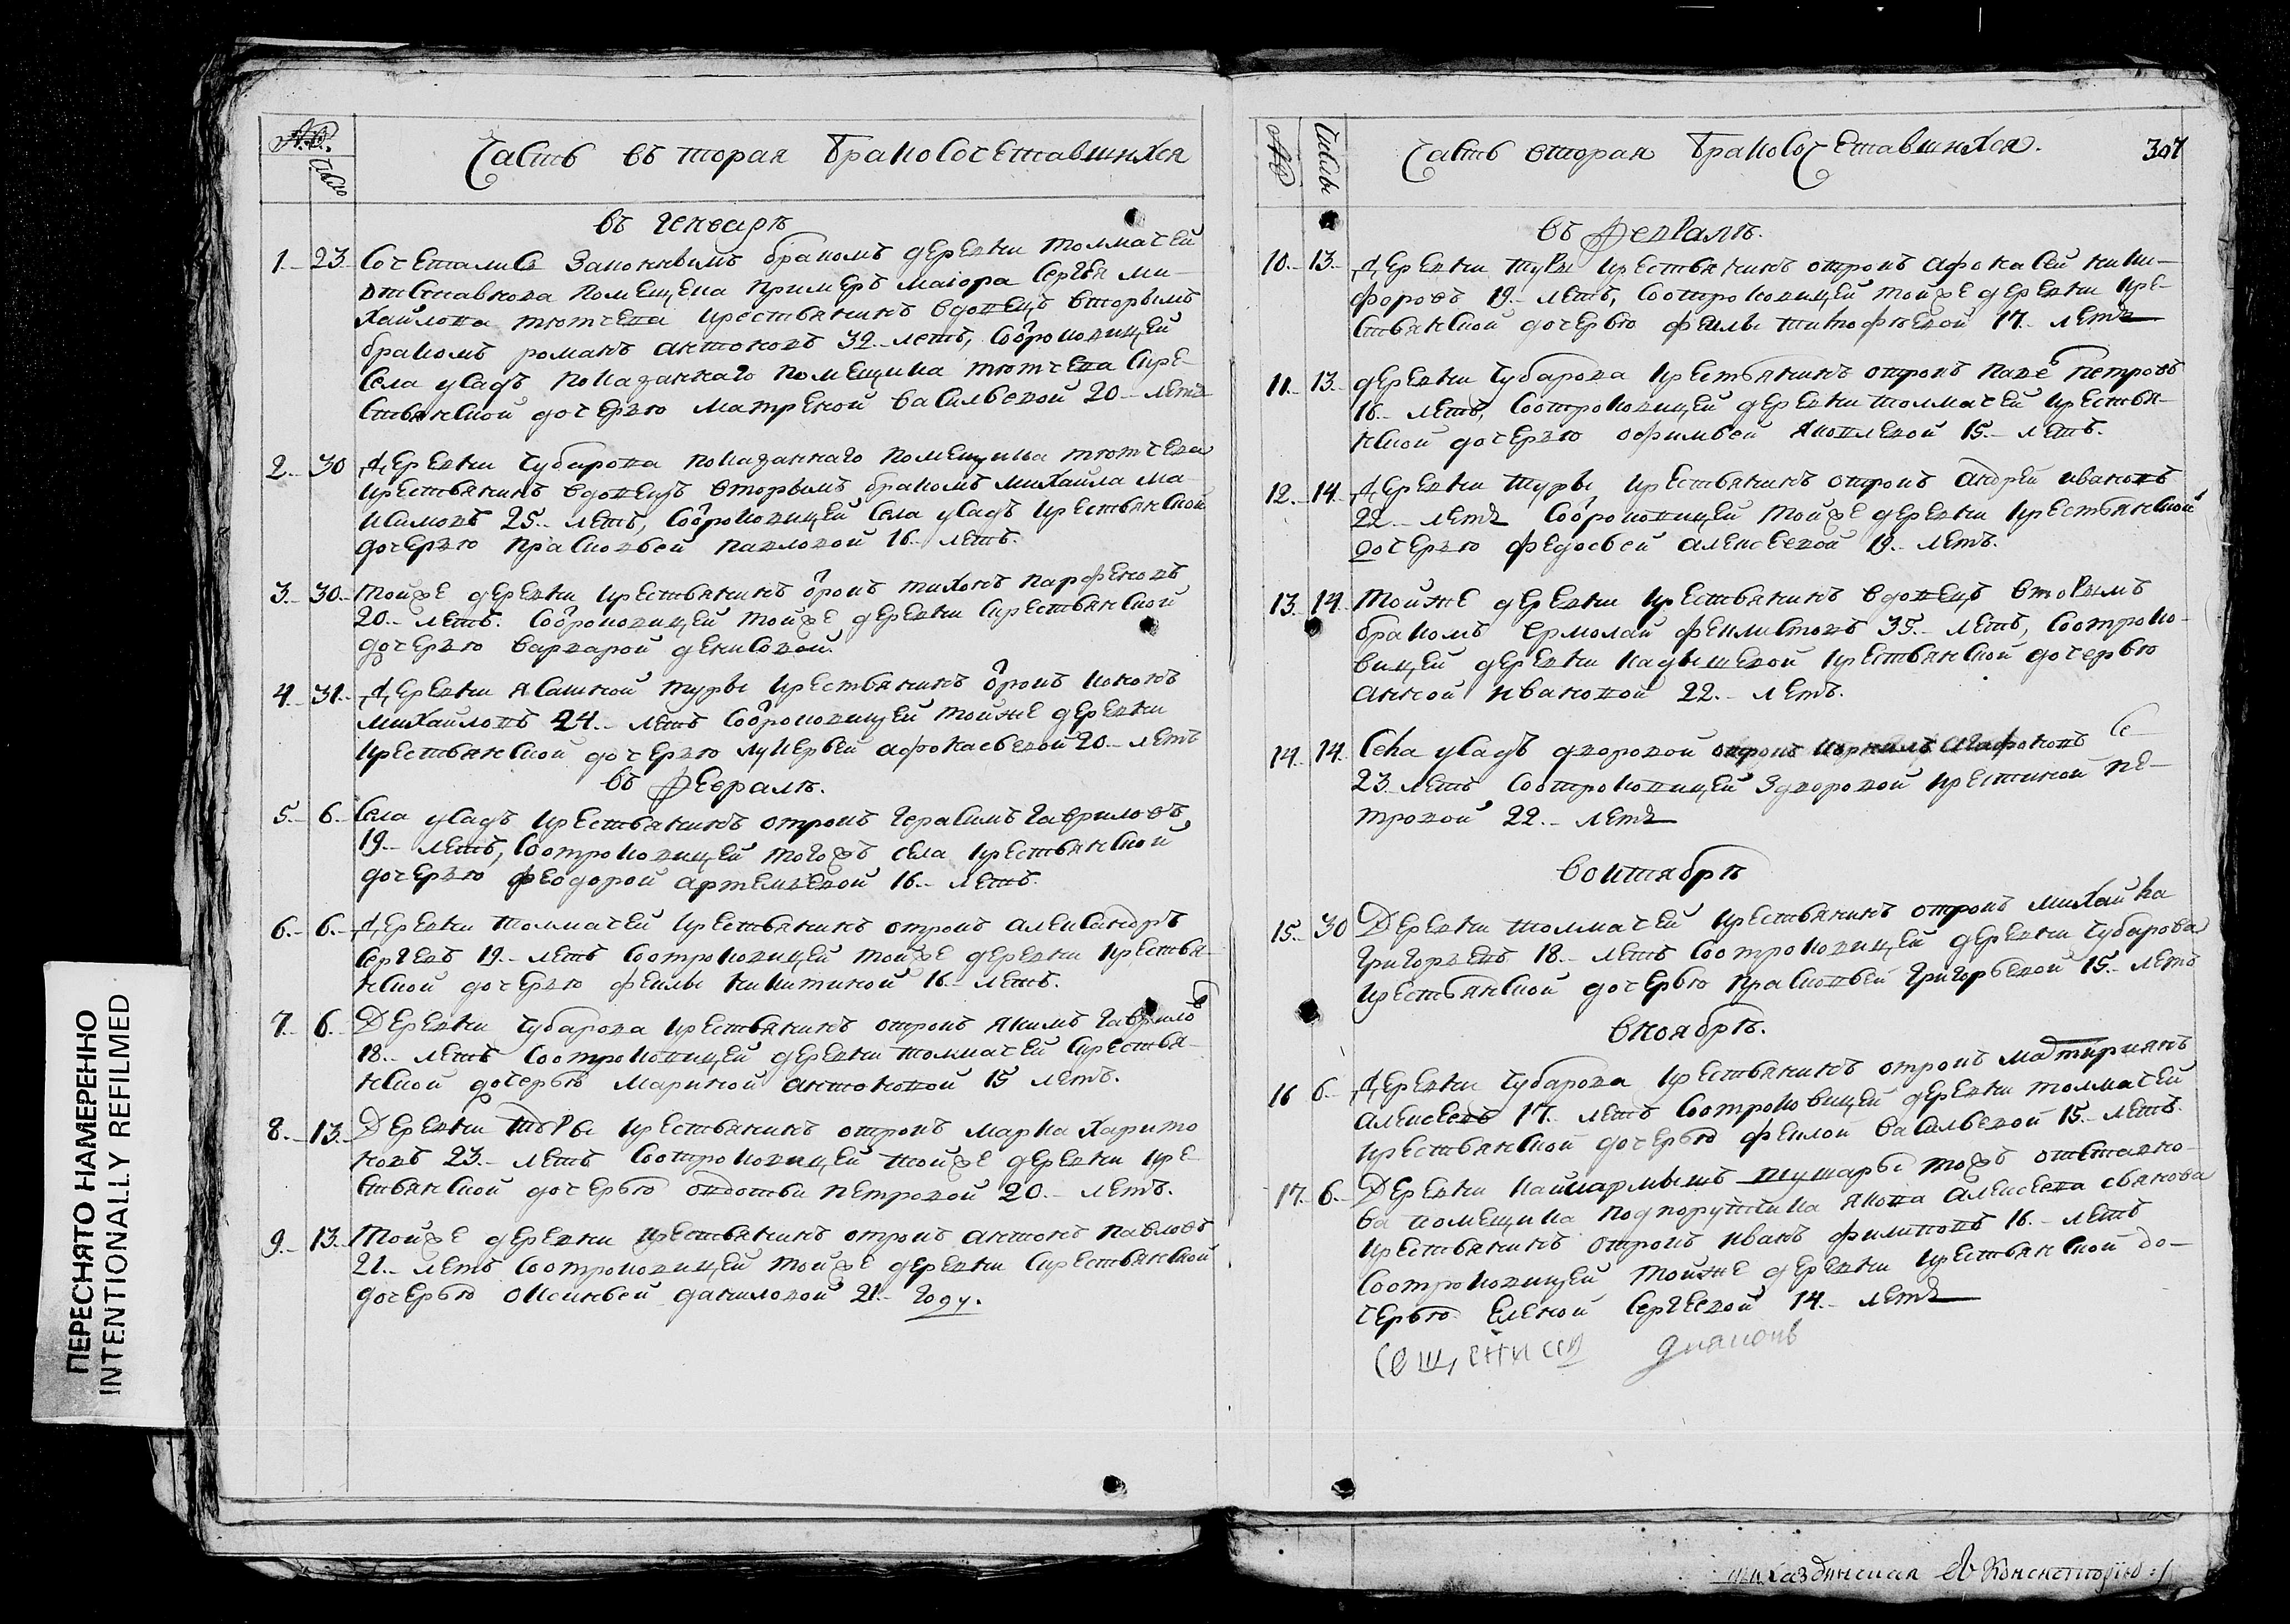 №
Число
Часть въ торая браковосочетавшихся
въ генваре
1. 23. Сочеталися Законнымъ бракомъ деревни толмачей
отставнова помещика примеръ маiора Сергея ми-
хайлова тютчева крестьянинъ вдовецъ вторымъ
бракомъ романъ антоновъ 32. летъ, Соотроковицей
села усадъ показаннаго помещика тютчева Скре-
стьянской дочерью матреной васильевой 20. летъ
2. 30 Деревни чубарова показаннаго помещика тютчева
крестьянинъ вдовецъ вторымъ бракомъ михаила ма-
ксимовъ 25. летъ, Соотроковицей села усадъ крестьянской
дочерью прасковьей павловой 16. летъ.
3. 30. Тойже деревни крестьянинъ отрокъ тихонъ парфеновъ
20. летъ. Соотроковицей тойже деревни Скрестьянской
дочерью варварой денисовой.
4. 31. Деревни ясашной туры крестьянинъ отрокъ кононъ
михайловъ 24. летъ Соотроковицей тойже деревни
крестьянской дочерью лукерьей афонасьевой 20. летъ
въ феврале.
5. 6. Села усадъ крестьянинъ отрокъ герасимъ гавриловъ
19. летъ, Соотроковицей тогожъ села крестьянской
дочерью феодорой артемьевой 16. летъ.
6. 6. Деревни толмачей крестьянинъ отрокъ александръ
сергевъ 19. летъ Соотроковицей тойже деревни крестья-
нской дочерью феклы никитиной 16. летъ.
7. 6. Деревни чубарова крестьянинъ отрокъ якимъ гаврило
въ
18. летъ Соотроковицей деревни толмачей Скрестья-
нской дочерью мариной антоновой 15 летъ.
8. 13. Деревни туры крестьянинъ отрокъ марка харито
новъ 23. летъ Соотроковицей тойже деревни кре
стьянской дочерью овдотьи петровой 20. летъ.
9. 13. Тойже деревни крестьянинъ отрокъ антонъ павловъ
21. летъ Соотроковицей тойже деревни Скрестьянской
дочерью оксиньей даниловой 21. году.
№
Числы
Часть вторая браковосочетавшихся. 307
въ феврале.
10. 13. Деревни туры крестьянинъ отрокъ афонасей ники-
форовъ 19. летъ, Соотроковицей тойже деревни кре-
стьянской дочерью феклы тимофеевой 17. летъ
11. 13. деревни чубарова крестьянинъ отрокъ паве петровъ
16. летъ, Соотроковицей деревни толмачей крестья-
нской дочерью офимьей яковлевой 15. летъ.
12. 14. Деревни туры крестьянинъ отрокъ андрей ивановъ
22. летъ Соотроковицей тойже деревни крестьянской
дочерью федосьей алексеевой 19. летъ.
13. 14. Тойже деревни крестьянинъ вдовецъ вторымъ
бракомъ ермолай феклистовъ 35. летъ, Соотроко-
вицей деревни кадышевой крестьянской дочерью
анной ивановой 22. летъ.
14. 14. Села усадъ дворовой отрокъ агафоновъ
23 летъ Соотроковицей Здворовой кре стиной пе-
тровой 22. летъ
воктябре
15. 30 Деревни толмачей крестьянинъ отрокъ михайла
григорьевъ 18. летъ Соотроковицей деревни чубарова
крестьянской дочерью прасковьей григорьевой 15. летъ
вноябре.
16 6. Деревни чубарова крестьянинъ отрокъ
алексеевъ 17. летъ Соотроковицей деревни толмачей
крестьянской дочерью феклой васильевой 15. летъ.
17. 6. Деревни тожъ отставно-
ва помещика подпорутчика якова алексеева
крестьянинъ отрокъ иванъ филиповъ 16. летъ
Соотроковицей тойже деревни крестьянской до-
черью еленой сергеевой 14. летъ
ПЕРЕСНЯТО НАМЕРЕННО
INTENTIONALLY REFILMED